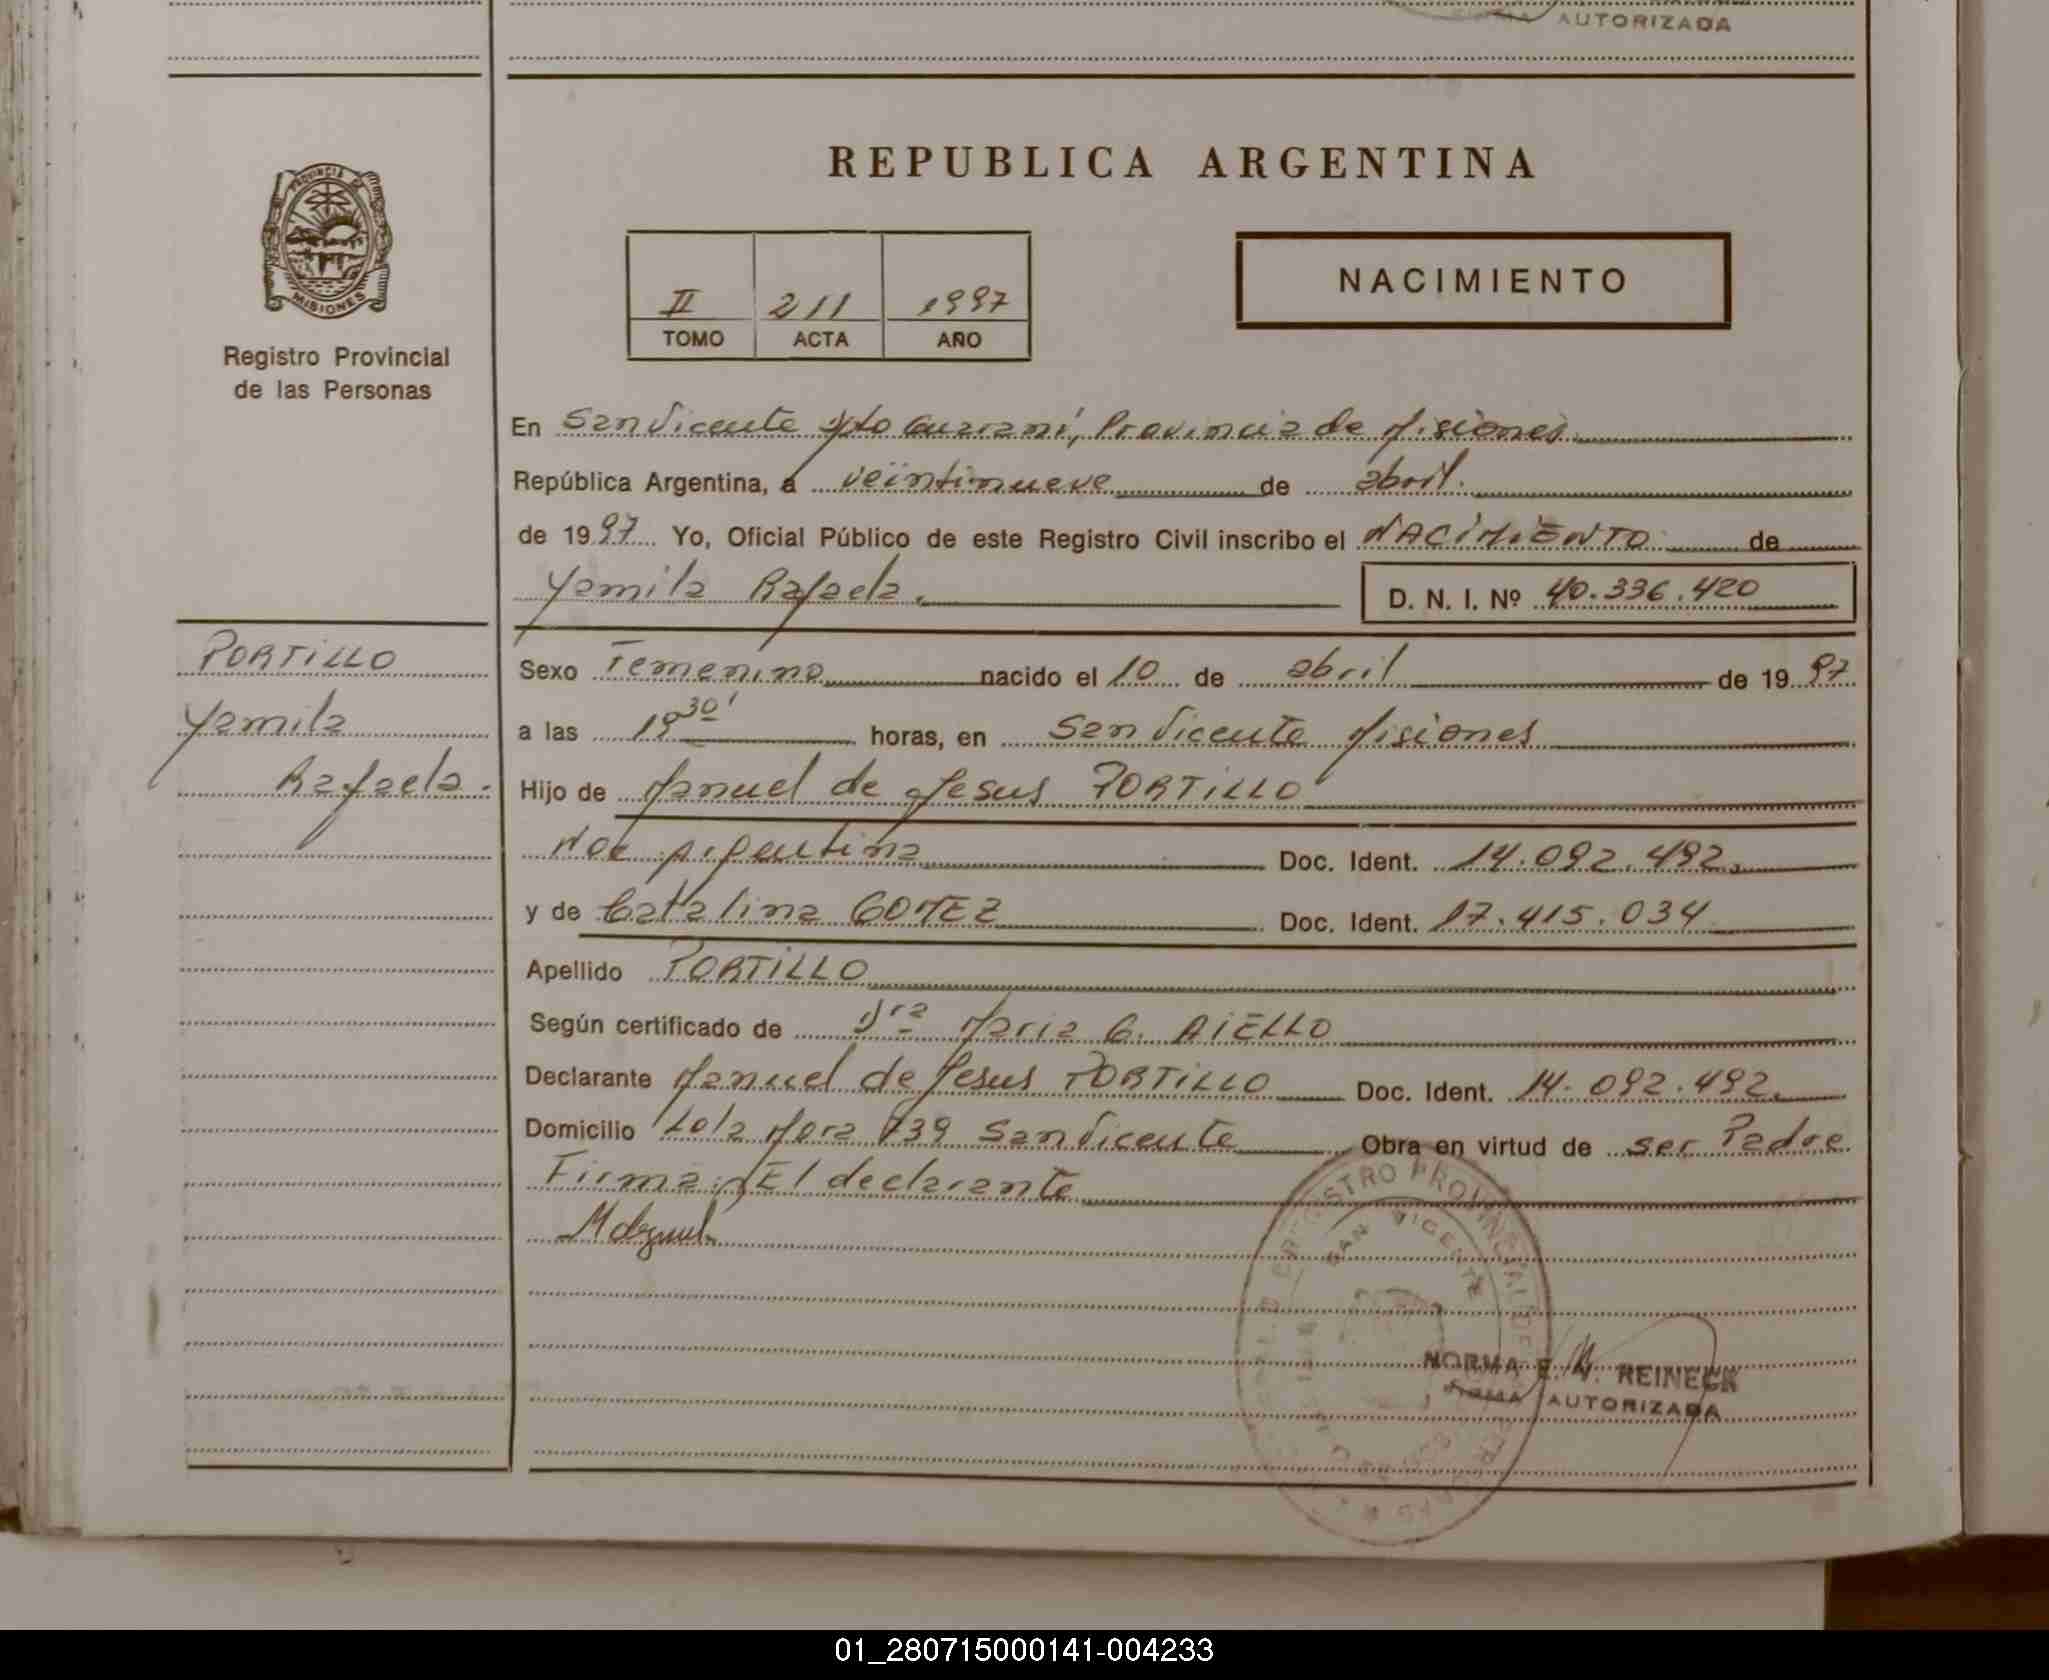 AUTORIZADA
PROVINCIA DE
MISIONES
Registro Provincial
de las Personas
REPUBLICA ARGENTINA
II 211 1997
TOMO ACTA AÑO
NACIMIENTO
En San Vicente Dpto Guaraní, Provincia de Misiones
República Argentina, a veintinueve de abril.
de 1997 Yo, Oficial Público de este Registro Civil inscribo el NACIMIENTO de
Yamila Rafaela. D. N. I. Nº 40.336.420
PORTILLO
Yamila
Rafaela.
Sexo Femenino nacido el 10 de abril de 1997
a las 19 30' horas, en San Vicente Misiones
Hijo de Manuel de Jesus PORTILLO
Nac Argentina Doc. Ident. 14.092.492.
y de Catalina GOMEZ Doc. Ident. 17.415.034
Apellido PORTILLO
Según certificado de Dra Maria G. AIELLO
Declarante Manuel de Jesus PORTILLO Doc. Ident. 14.092.492.
Domicilio Lola Mora 739 San Vicente Obra en virtud de ser Padre
Firma: El declarante
REGISTRO PROVINCIAL DE
SAN VICENTE
NORMA E. M. REINECK
FIRMA AUTORIZADA
01_280715000141-004233